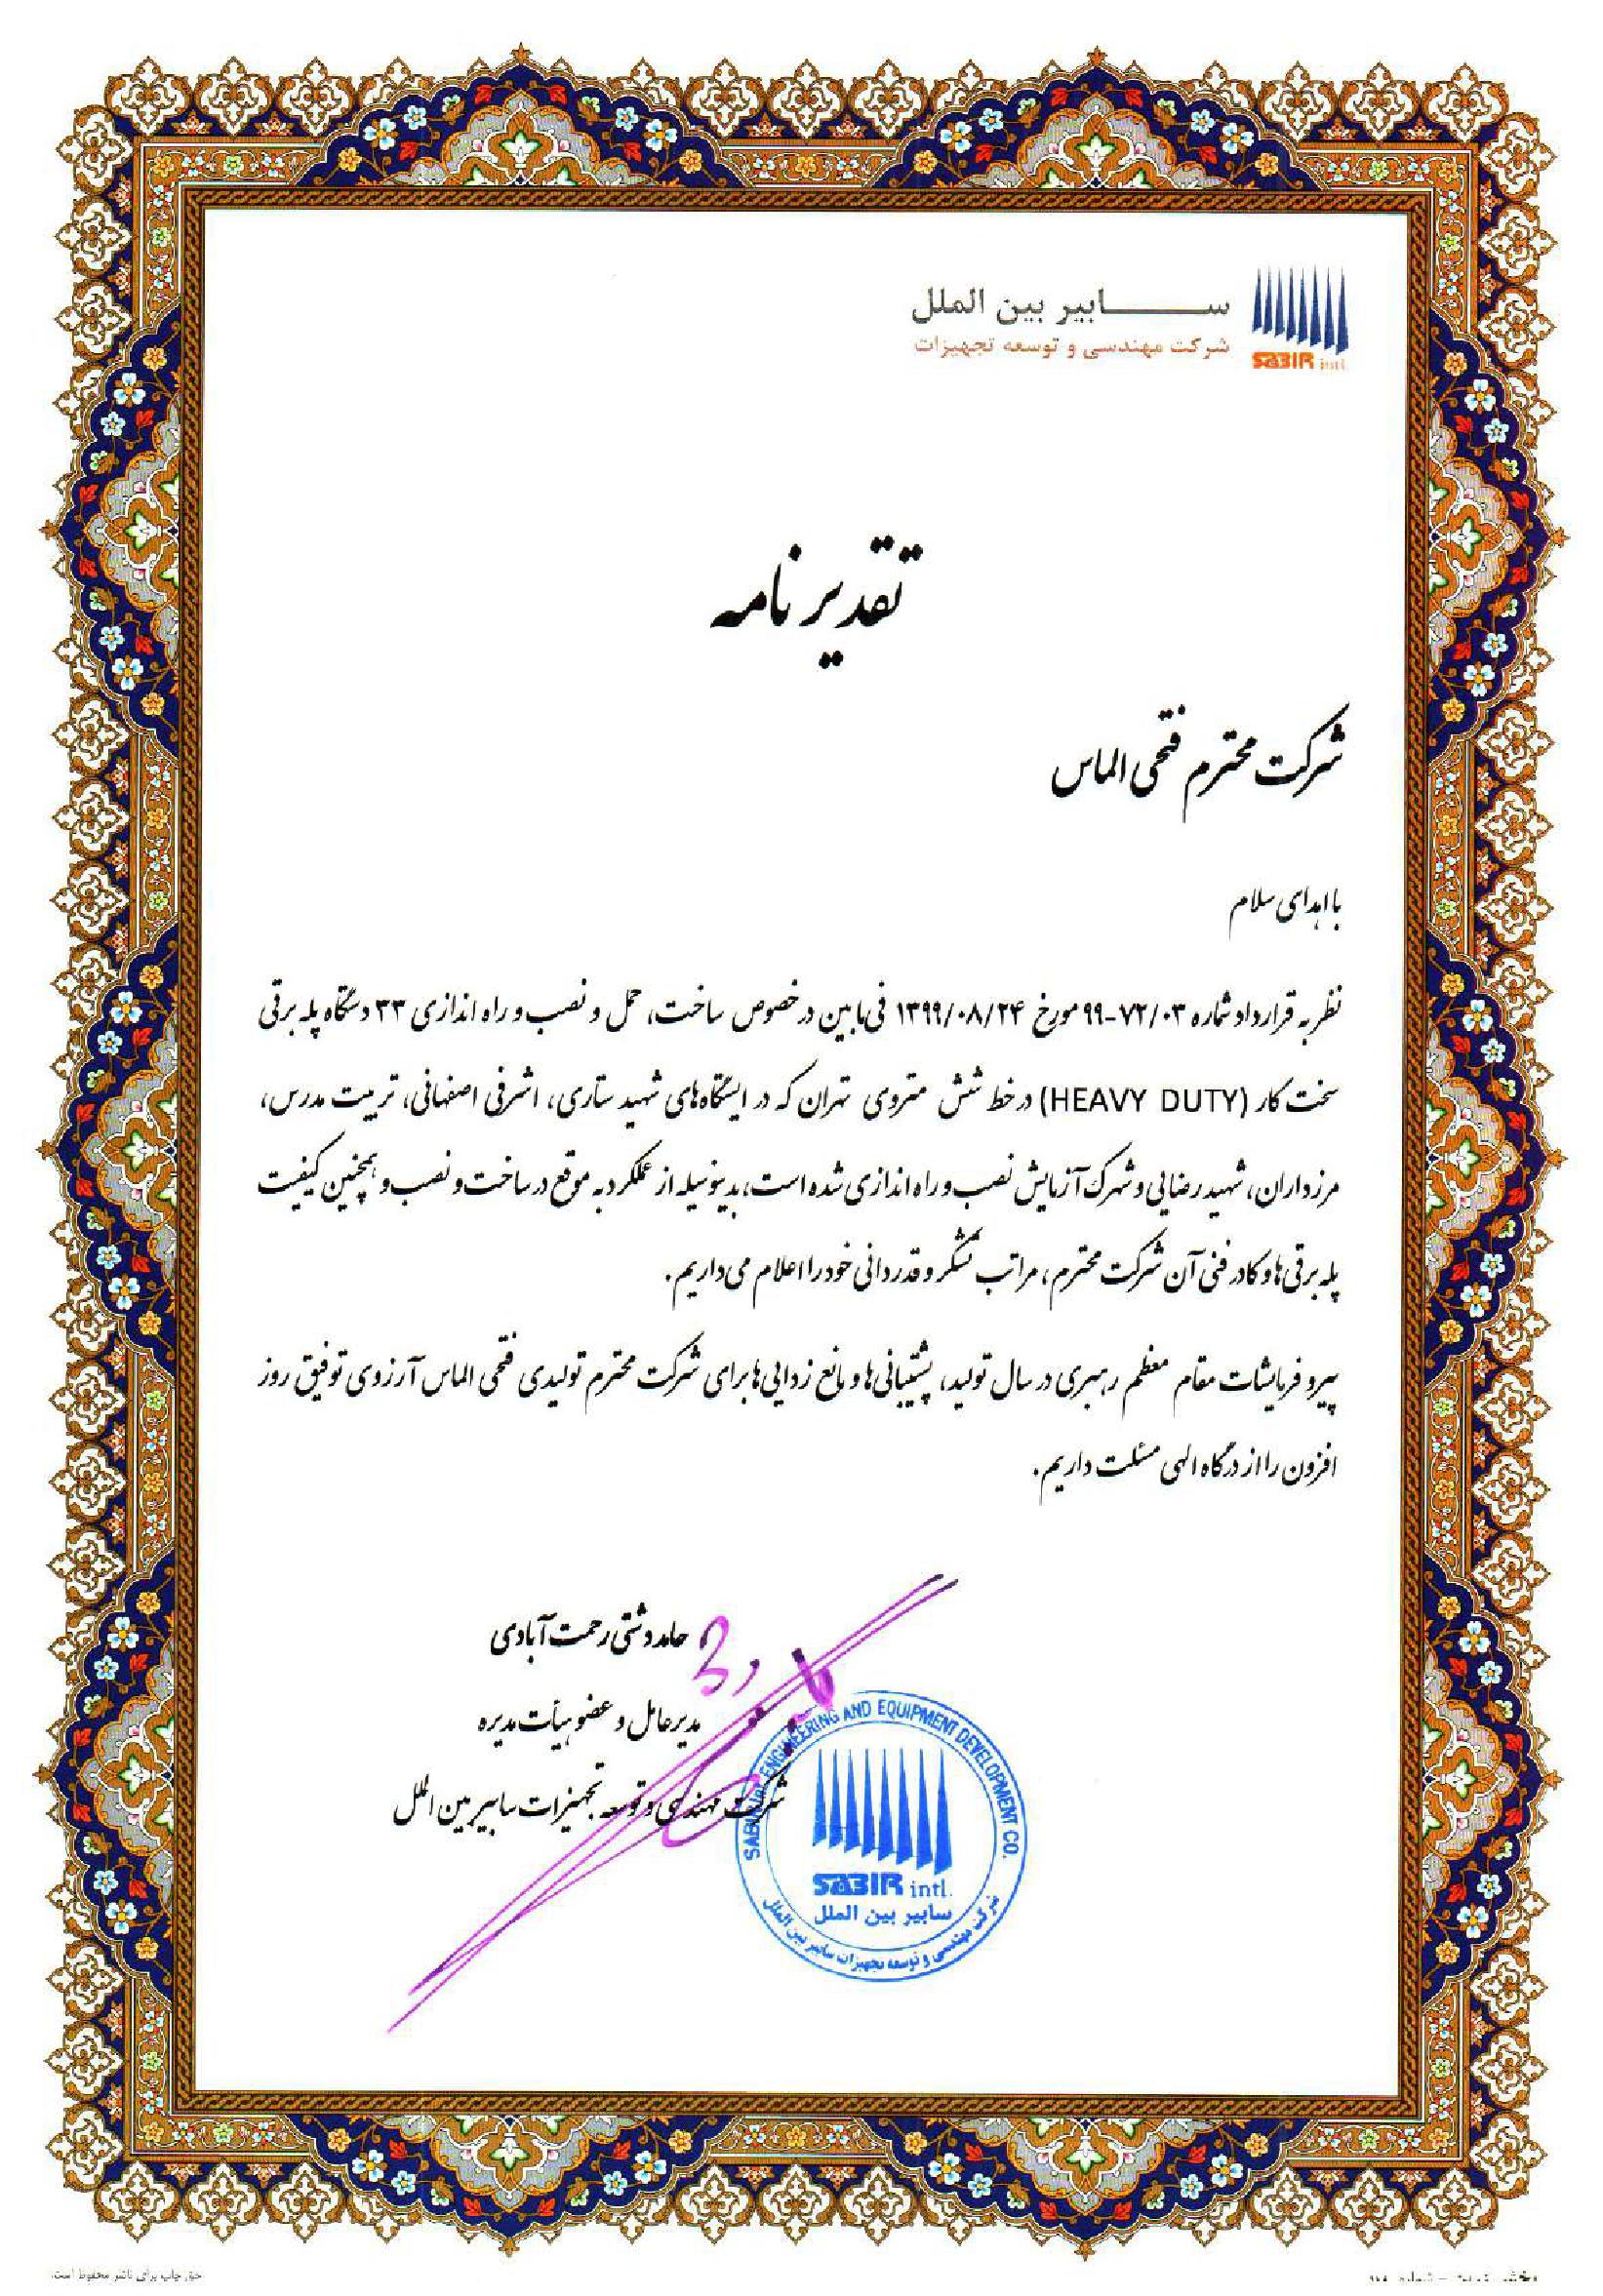 سابیر بین الملل
شرکت مهندسی و توسعه تجهیزات
SABIR intl.
تقدیرنامه
شرکت محترم فتحی الماس
با اهدای سلام
نظر به قرارداد شماره ۹۹-۷۲/۰۳ مورخ ۱۳۹۹/۰۸/۲۴ فی مابین در خصوص ساخت، حمل و نصب و راه اندازی ۳۳ دستگاه پله برقی
سخت کار (HEAVY DUTY) در خط شش متروی تهران که در ایستگاه‌های شهید ستاری، اشرفی اصفهانی، تربیت مدرس،
مرزداران، شهید رضایی و شهرک آزمایش نصب و راه اندازی شده است، بدینوسیله از عملکرد به موقع در ساخت و نصب و همچنین کیفیت
پله برقی ها و کادر فنی آن شرکت محترم، مراتب تشکر و قدردانی خود را اعلام می داریم.
پیرو فرمایشات مقام معظم رهبری در سال تولید، پشتیبانی ها و مانع زدایی ها برای شرکت محترم تولیدی فتحی الماس آرزوی توفیق روز
افزون را از درگاه الهی مسئلت داریم.
حامد دشتی رحمت آبادی
مدیرعامل و عضو هیأت مدیره
شرکت مهندسی و توسعه تجهیزات سابیر بین الملل
SABIR intl. ENGINEERING AND EQUIPMENT DEVELOPMENT CO.
SABIR intl.
سابیر بین الملل
شرکت مهندسی و توسعه تجهیزات سابیر بین الملل
حق چاپ برای ناشر محفوظ است.